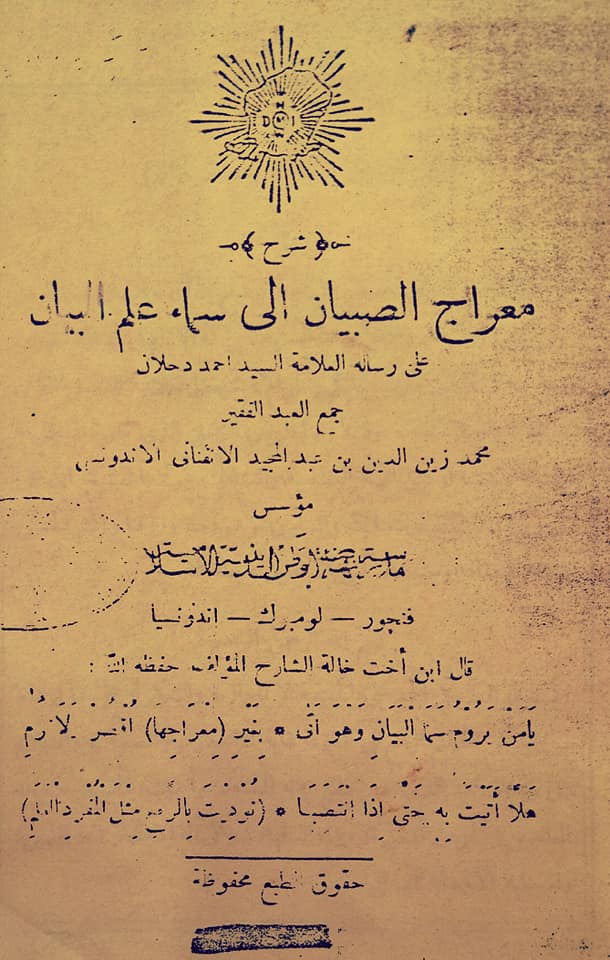 شرح
معراج الصبيان الى سماء علم البيان
على رسالة العلامة السيد احمد دحلان
جمع العبد الفقير
محمد زين الدين بن عبد المجيد الانفنانى الاندونسى
مؤسس
فنجور — لومبوك — اندونسيا
قال ابن أخت خالة الشارح المؤلف حفظه الله :
يَامَنْ يَرُوْمُ سَمَا الْبَيَانِ وَهو أَتَى * بِغَيْرِ (مِعْرَاجِهَا)
هَلاَّ أَتَيْتَ بِهِ حَتَّى إِذَا انْتَصَبَا * (نُوْدِيْتَ بِالرَّفْعِ مِثْلَ الْمُفْرَدِ الْعَلَمِ)
حقوق الطبع محفوظة